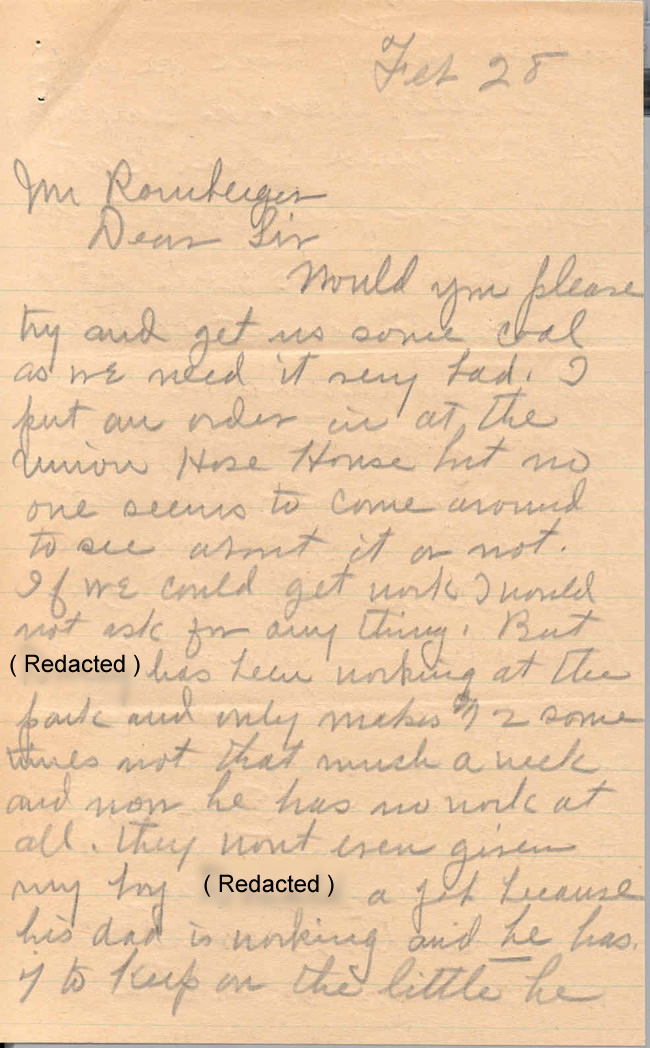 Feb 28
Mr Romberger
Dear Sir
Would you please
try and get us some coal
as we need it very bad. I
put an order in at the
Union Hose House but no
one seems to come around
to see about it or not.
If we could get work I would
not ask for any thing. But
( Redacted ) has been working at the
park and only makes 2 some
times not that much a week
and now he has no work at
all. they wont even given
my boy ( Redacted ) a job because
his dad is working and he has
to keep on the little he